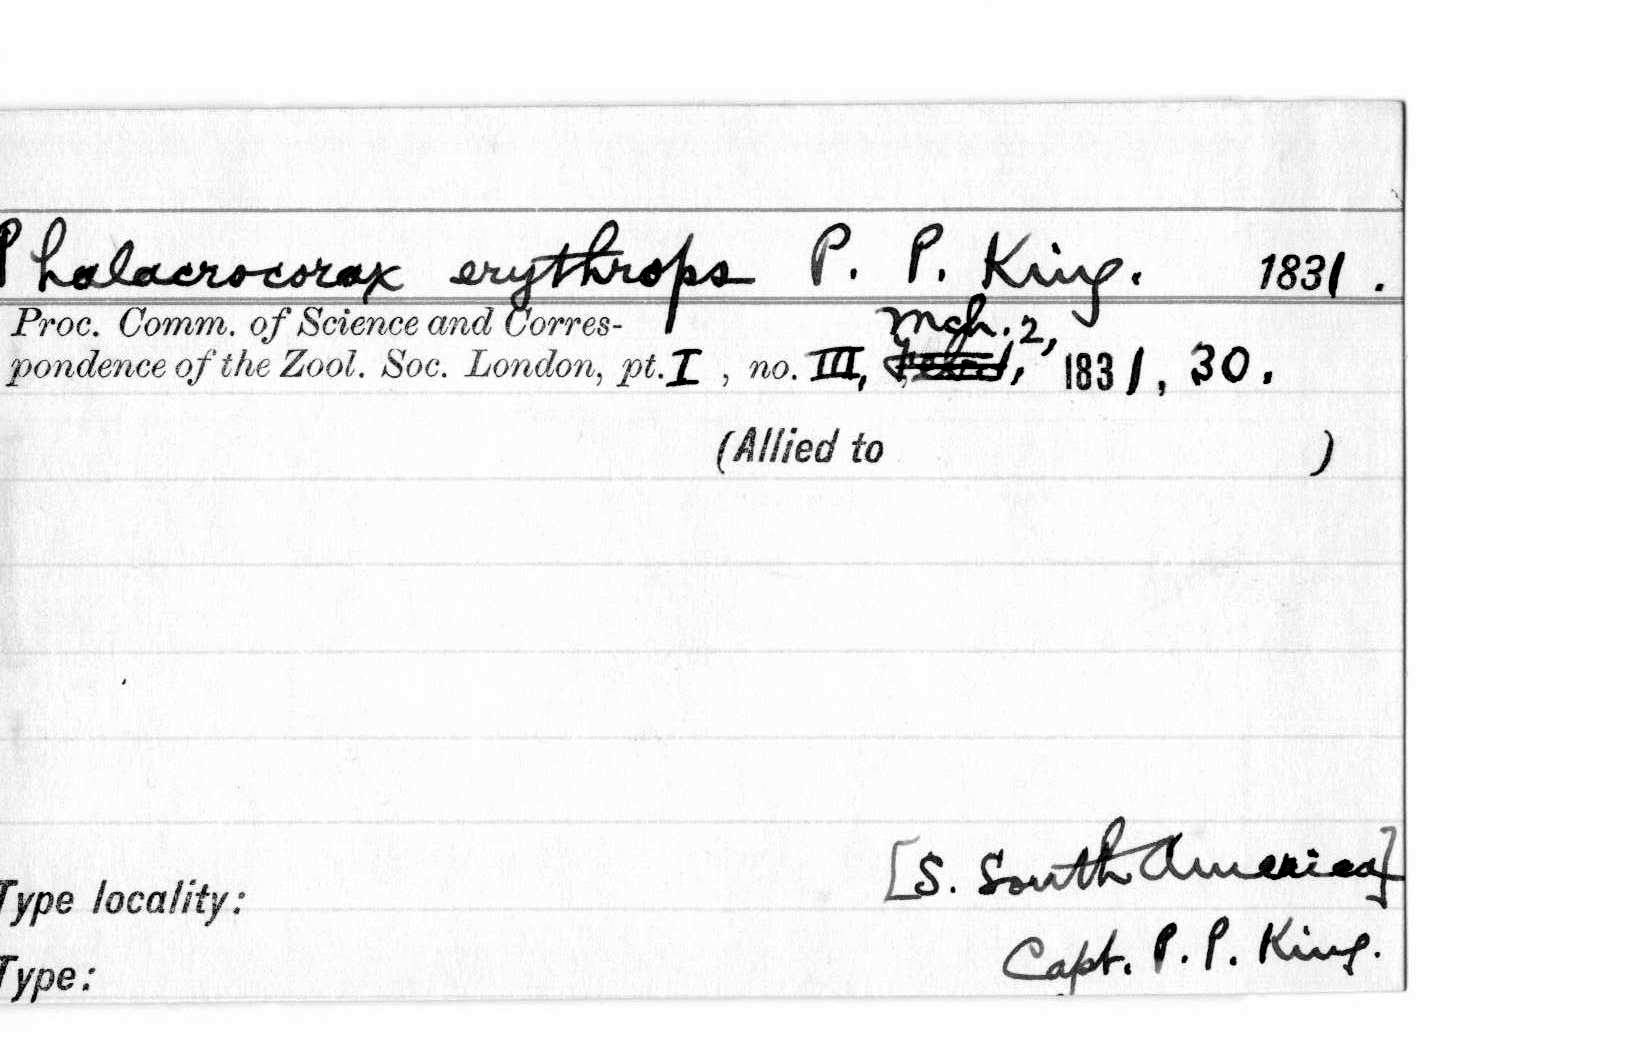 Phalacrocorax erythrops P. P. King. 1831.
Proc. Comm. of Science and Corres-
Mch. 2,
pondence of the Zool. Soc. London, pt. I, no. III, 1831, 30.
(Allied to )
[S. South America]
Type locality:
Capt. P. P. King.
Type: